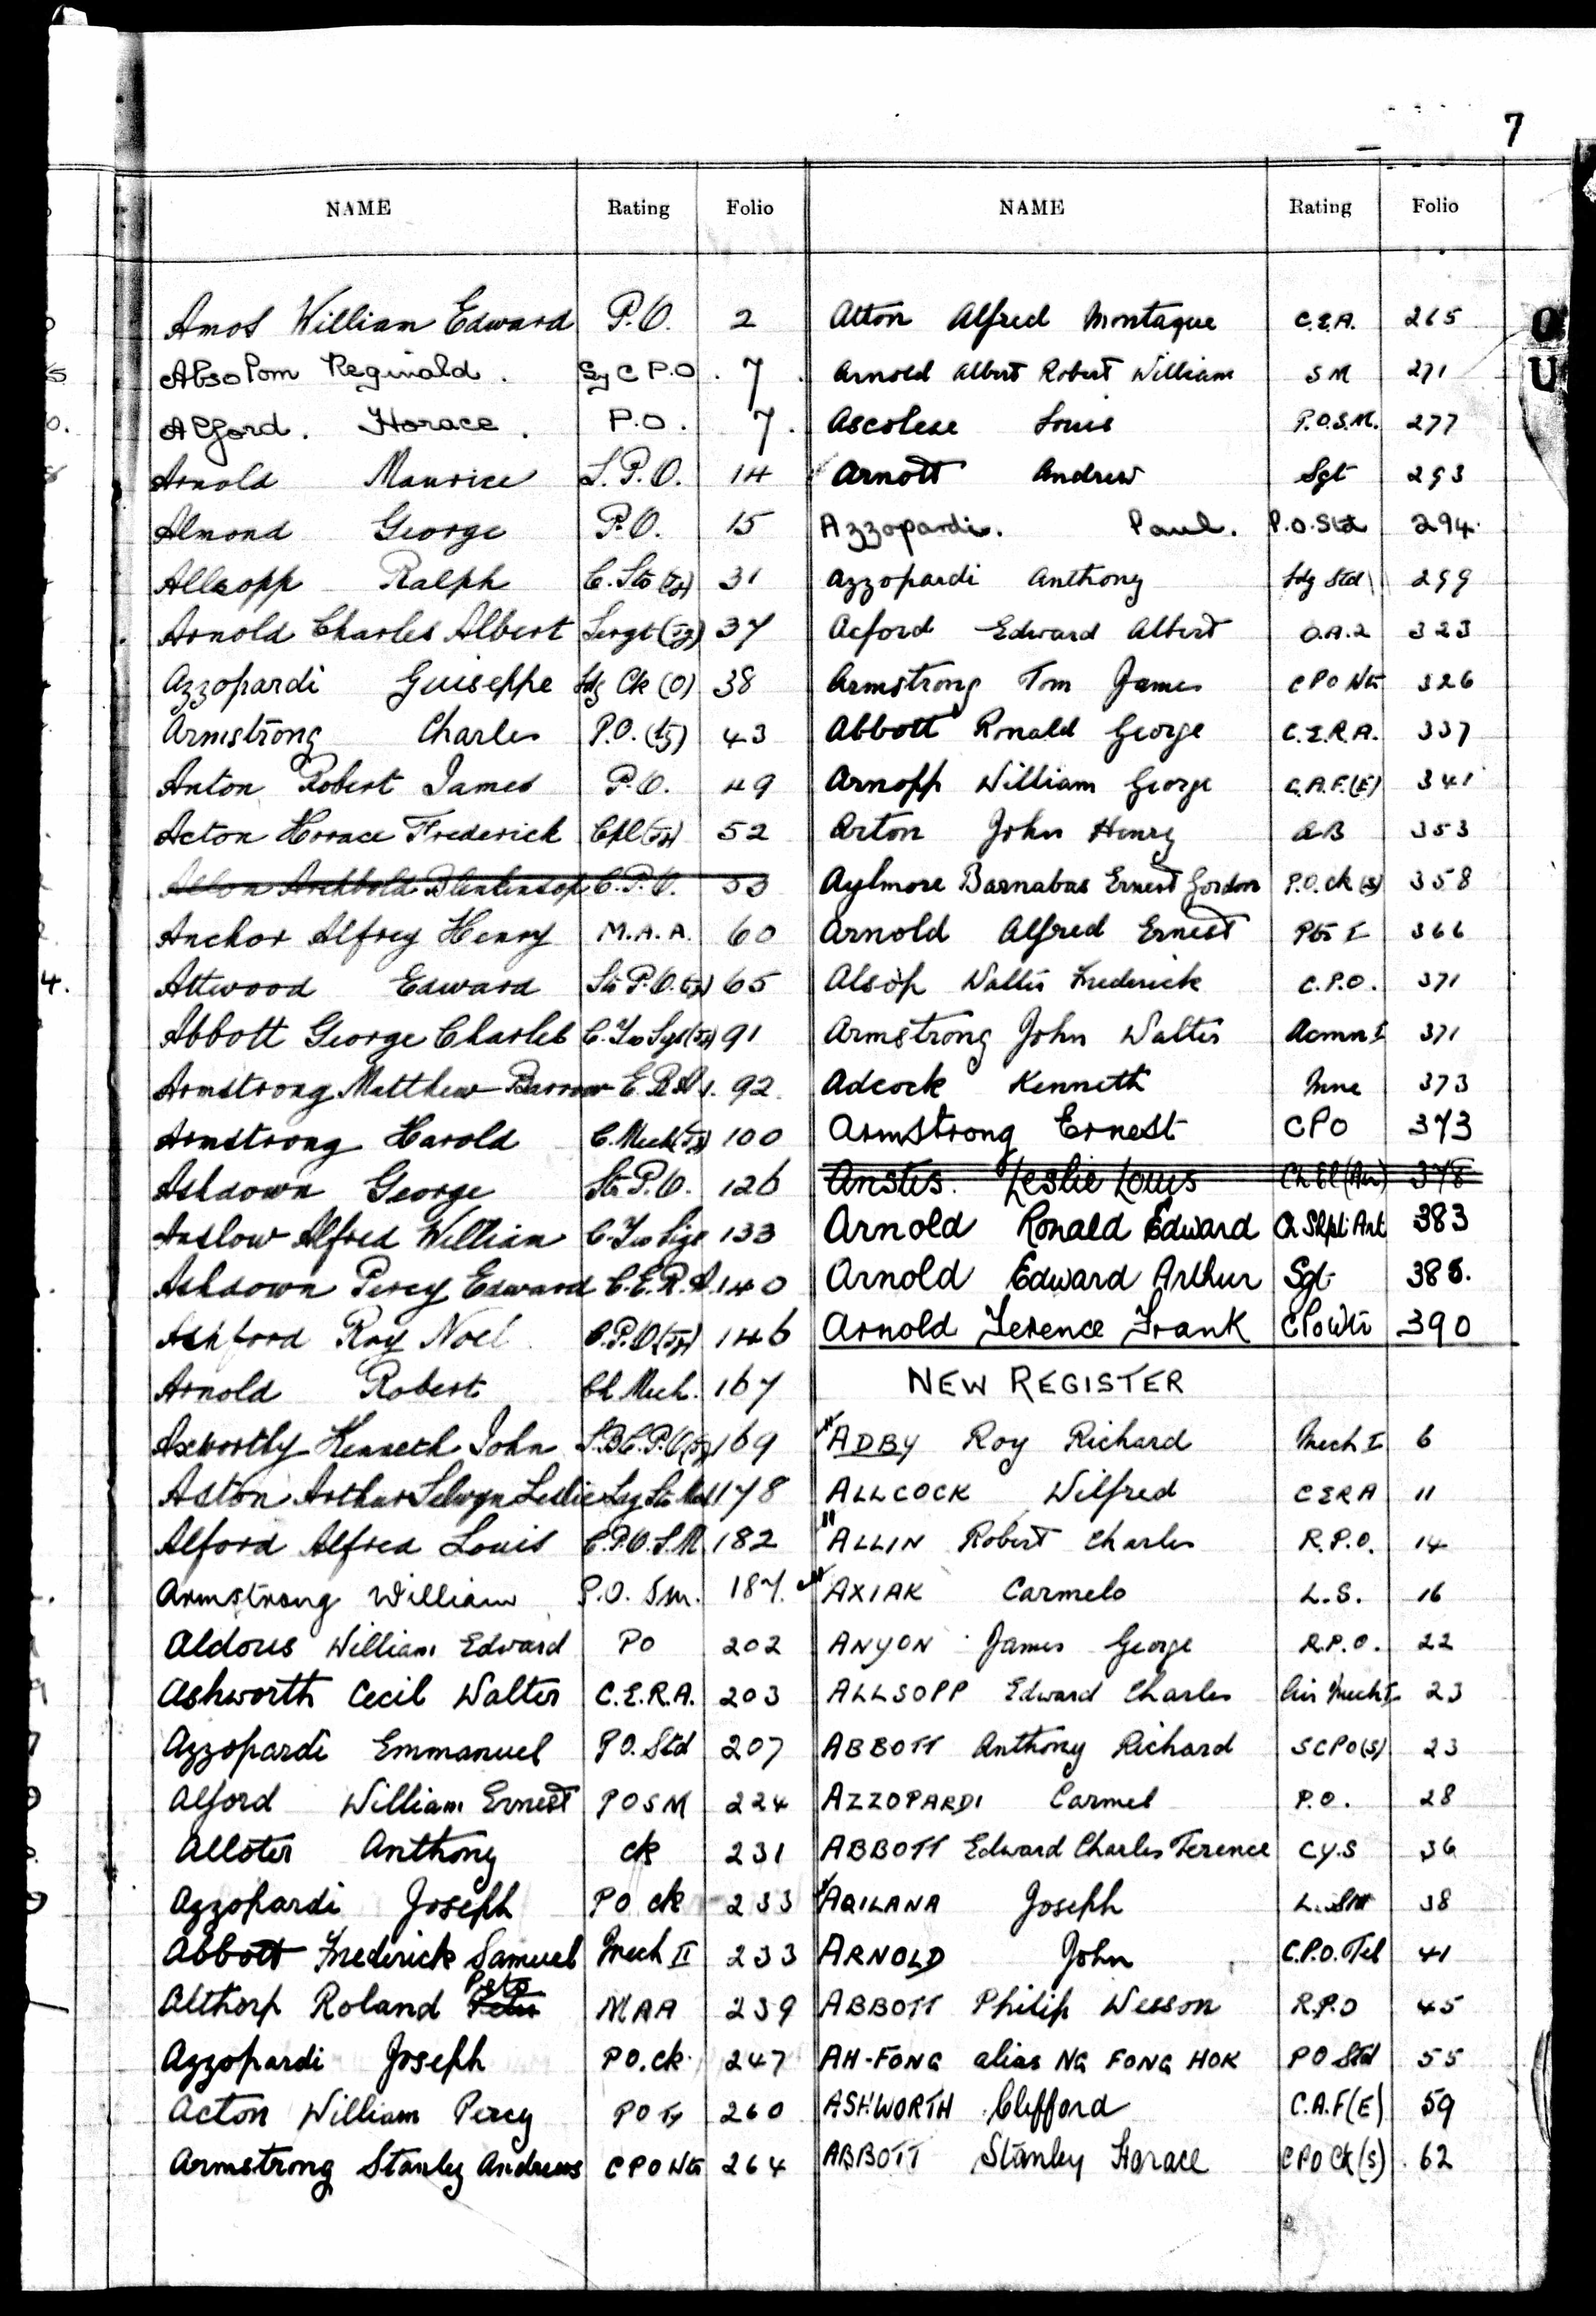 7
NAME Rating Folio NAME Rating Folio
Amos William Edward P.O. 2
Absolom Reginald. Sy C P.O. 7
Alford. Horace. P.O. 7.
Arnold Maurice S.P.O. 14
Almond George P.O. 15
Allsopp Ralph C. Sto (Ty) 31
Arnold Charles Albert Sergt (Ty) 37
Azzopardi Guiseppe Ldg Ck (O) 38
Armstrong Charles P.O. (Ty) 43
Anton Robert James P.O. 49
Acton Horace Frederick Cpl (Ty) 52
Archbold Blenkinsop C.P.O. 53
Anchor Alfrey Henry M.A.A. 60
Attwood Edward Sto P.O. (Ty) 65
Abbott George Charles C. Yeo Sigs (Ty) 91
Armstrong Matthew Barrow E.R.A. 92.
Armstrong Harold C. Mech (Ty) 100
Ashdown George Sto P.O. 126
Anslow Alfred William C. Yeo Sigs 133
Ashdown Percy Edward C.E.R.A. 140
Ashford Roy Noel C.P.O (Ty) 146
Arnold Robert Ch. Mech. 167
Axworthy Kenneth John S.B.C.P.O (Ty) 169
Aston Arthur Selwyn Leslie Ldg Sto Mech 178
Alford Alfred Louis C.P.O.S.M. 182
Armstrong William P.O. Sm. 187.
Aldous William Edward PO 202
Ashworth Cecil Walter C.E.R.A. 203
Azzopardi Emmanuel P.O. Std 207
Alford William Ernest POSM 224
Alloter Anthony Ck 231
Azzopardi Joseph PO Ck 233
Abbott Frederick Samuel Mech II 233
Peto
Althorp Roland Peter MAA 239
Azzopardi Joseph PO. Ck. 247
Acton William Percy PO Ty 260
Armstrong Stanley Andrews CPO Wtr 264
Atton Alfred Montague C.E.A. 265
Arnold Albert Robert William SM 271
Ascolese Louis P.O.S.M. 277
Arnott Andrew Sgt 293
Azzopardi. Paul. P.O. Std 294.
Azzopardi Anthony Ldg Std 299
Acford Edward Albert O.A.2 323
Armstrong Tom James CPO Wtr 326
Abbott Ronald George C.E.R.A. 337
Arnopp William George C.A.F.(E) 341
Arton John Henry AB 353
Aylmore Barnabas Ernest Gordon P.O. Ck (S) 358
Arnold Alfred Ernest Ptr I 366
Alsop Walter Frederick C.P.O. 371
Armstrong John Walter Acmn I 371
Adcock Kenneth Mne 373
Armstrong Ernest CPO 373
Anstis. Leslie Louis Ch El (Air) 378
Arnold Ronald Edward Ch Shpt Art 383
Arnold Edward Arthur Sgt 385.
Arnold Terence Frank CPO Wtr 390
NEW REGISTER
ADBY Roy Richard Mech I 6
ALLCOCK Wilfred CERA 11
ALLIN Robert Charles R.P.O. 14
AXIAK Carmelo L.S. 16
ANYON James George R.P.O. 22
ALLSOPP Edward Charles Air Mech I 23
ABBOTT Anthony Richard SCPO(S) 23
AZZOPARDI Carmel P.O. 28
ABBOTT Edward Charles Terence CY.S 36
AQILANA Joseph L. Std 38
ARNOLD John C.P.O. Tel 41
ABBOTT Philip Wesson R.P.O 45
AH-FONG alias NG FONG HOK PO Std 55
ASHWORTH Clifford C.A.F(E) 59
ABBOTT Stanley Horace CPO Ck (S) 62